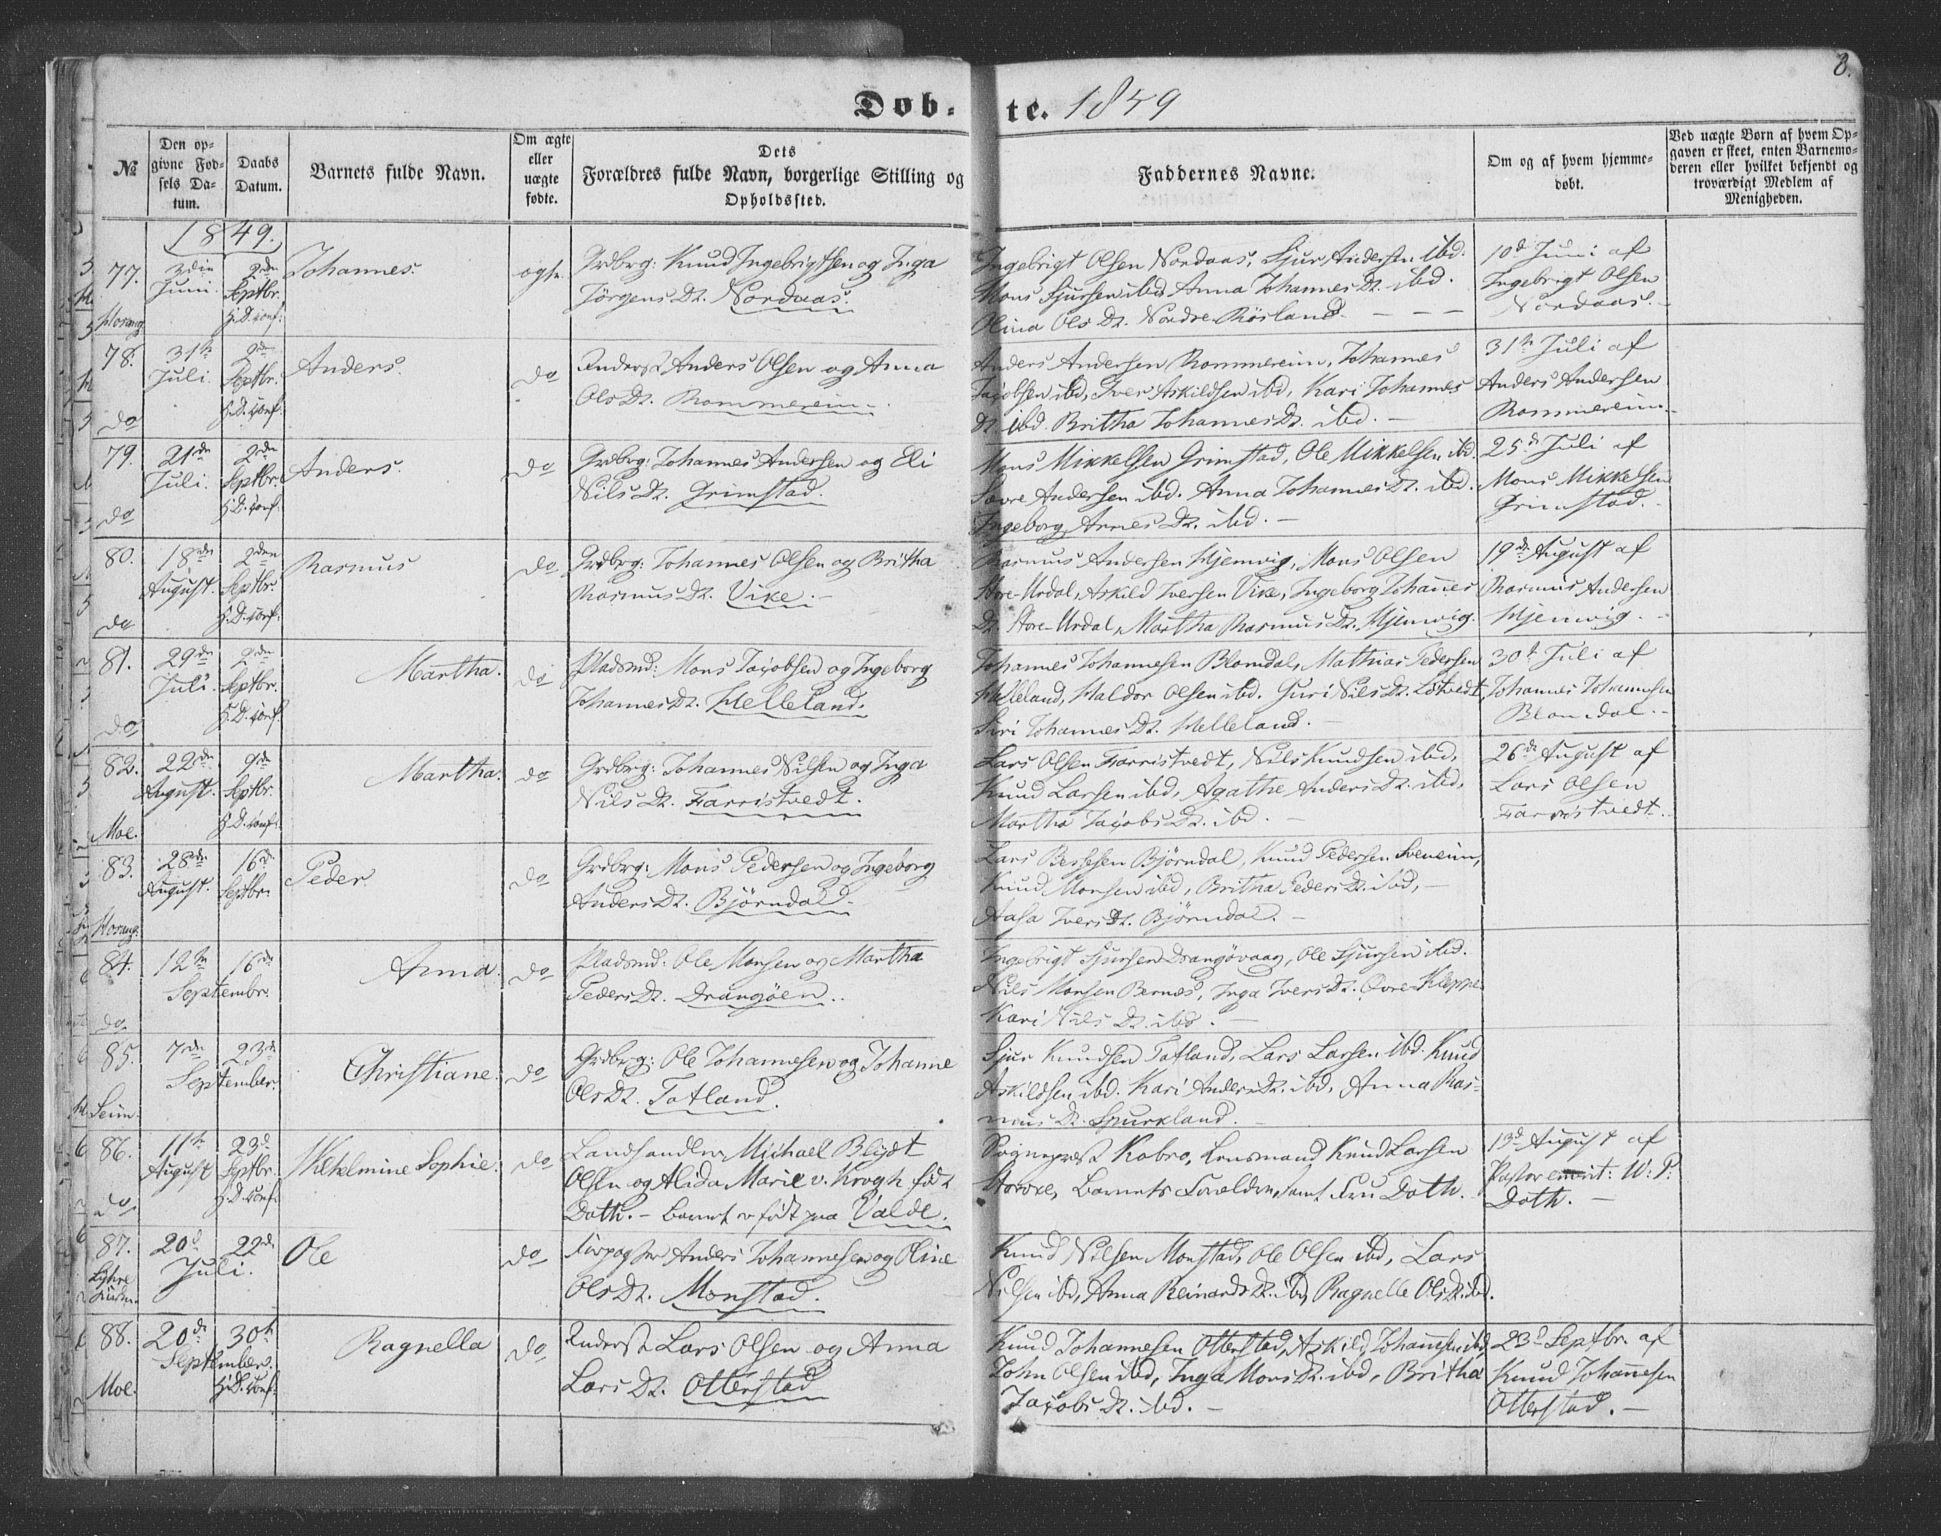 Døb-te. 1849
8.
№
Den op-
givne Fød-
sels Da-
tum.
Daabs
Datum.
Barnets fulde Navn.
Om ægte
eller
uægte
fødte.
Dets
Forældres fulde Navn, borgerlige Stilling og
Opholdssted.
Faddernes Navne.
Om og af hvem hjemme-
døbt.
Ved uægte Børn af hvem Op-
gaven er skeet, enten Barnemo-
deren eller hvilket bekjendt og
troværdigt Medlem af
Menigheden.
1849.
77.
Hosang.
Juni
2den
Septbr.
H.D. conf.
Johannes.
ægte.
Grdbrg: Knud Ingebrigtsen og Inga
Jörgens Dt. Nordaas.
Ingebrigt Olsen Nordaas, Sjur Andersen ibd.
Mons Sjursen ibid. Anna Johannes Dt. ibd.
Olina Ols Dt. Nordre Rösland.
10d Juni af
Ingebrigt Olsen
Nordaas.
78.
do
31te
Juli.
2den
Septbr.
H.D. conf.
Anders.
do
Anders Olsen og Anna
Ols Dt. Rommereim.
Anders Andersen Rommereim, Johannes
Jacobsen ibd, Iver Askildsen ibd, Kari Johannes
Dt. ibd. Britha Johannes Dt. ibd.
31te Juli af
Anders Andersen
Rommereim.
79.
do
21de
Juli.
2den
Septbr.
H.D. conf.
Anders.
do
Grdbrg: Johannes Andersen og Eli
Nils Dt. Grimstad.
Mons Mikkelsen Grimstad, Ole Mikkelsen ibd.
Andersen ibd. Anna Johannes Dt. ibd.
Ingeborg Arnes Dt. ibd.
25de Juli af
Mons Mikkelsen
Grimstad.
80.
do
18de
August.
2den
Septbr.
H.D. conf.
Rasmus
do
Grdbrg: Johannes Olsen og Britha
Rasmus Dt. Vike.
Rasmus Andersen Hjemvig, Mons Olsen
Store-Urdal, Askild Iversen Vike, Ingeborg Johannes
Dt. Store-Urdal, Martha Rasmus Dt. Hjemvig.
19de August af
Rasmus Andersen
Hjemvig.
81.
do
29de
Juli.
2den
Septbr.
H.D. conf.
Martha.
do
Pladsmd: Mons Jacobsen og Ingeborg
Johannes Dt. Helleland.
Johannes Johannesen Blomdal, Mathias Pedersen
Helleland, Haldor Olsen ibd. Guri Nils Dt. Lötvedt
Siri Johannes Dt. Helleland.
30te Juli af
Johannes Johannesen
Blomdal.
82.
Moe.
22de
August.
9de
Septbr.
H.D. conf.
Martha.
do
Grdbrg: Johannes Nilsen og Inga
Nils Dt. Farristvedt.
Lars Olsen Farristvedt, Nils Knudsen ibd,
Knud Larsen ibd, Agathe Anders Dt. ibd,
Martha Jacobs Dt. ibd.
26de August af
Lars Olsen
Farristvedt.
83.
Hosang.
28de
August.
16de
Septbr.
Peder.
do
Grdbrg: Mons Pedersen og Ingeborg
Anders Dt. Björndal.
Lars Bessesen Björndal, Knud Pedersen Sveneim,
Knud Monsen ibd, Britha Peders Dt. ibd,
Aasa Ivers Dt. Björndal.
84.
do.
12te 16de
Septembr.
Anna.
do
Pladsmd: Ole Monsen og Martha
Peders Dt. Drangöen.
Ingebrigt Sjursen Drangövaag, Ole Sjursen ibd.
Nils Monsen Bernæs, Inga Ivers Dt. Øvre-Kleppe
Kari Nils Dt. ibd.
85.
Seim.
7de 23de
September.
Christiane.
do
Grdbrg: Ole Johannesen og Johanne
Ols Dt. Totland.
Sjur Knudsen Totland, Lars Larsen ibd. Knud
Askildsen ibd. Kari Anders Dt. ibd, Anna Ras-
mus Dt. Spurkland.
86.
do
11te
August
23d
Septbr.
H.D. conf.
Wilhelmine Sophie.
do
Landhandler Michael Blydt
Olsen og Alida Marie v. Krogh født
Dath. - barnet er født paa Valde.
Sogneprest Kobro, Lensmand Knud Larsen
Storoxe, Barnets Forældre, samt Fru Dath.
13d August af
Pastor emerit: W: P:
Dath.
87.
20d 22de
Juli.
Ole
do
Anders Johannesen og Oline
Ols Dt. Monstad.
Knud Nilsen Monstad, Ole Olsen ibd, Lars
Nilsen ibd, Anna Reinards Dt. ibd, Ragnelle Ols Dt. ibd.
88.
Moe.
20de 30te
September.
H.D. conf.
Ragnella
do
Lars Olsen og Anna
Lars Dt. Otterstad
Knud Johannesen Otterstad, Askild Johannesen ibd,
John Olsen ibd, Inga Mons Dt. ibd, Britha
Jacobs Dt. ibd.
23d Septbr. af
Knud Johannesen
Otterstad.